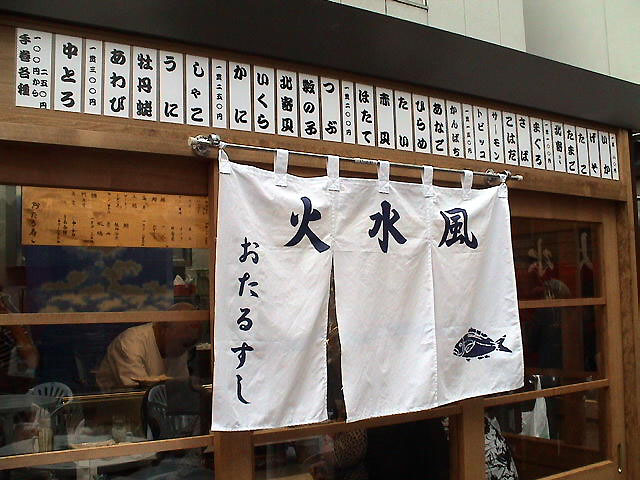 いか
げそ
たまご
たこ
まぐろ
さば
こはだ
サーモン
トビッコ
かんぱち
あなご
ひらめ
たい
赤貝
ほたて
一貫二〇〇円
つぶ
数の子
北寄貝
いくら
かに
一貫二五〇円
しゃこ
うに
牡丹蝦
あわび
一貫三〇〇円
中とろ
手巻各種
一〇〇円から
二五〇円
風水火
おたるすし
おたるすし